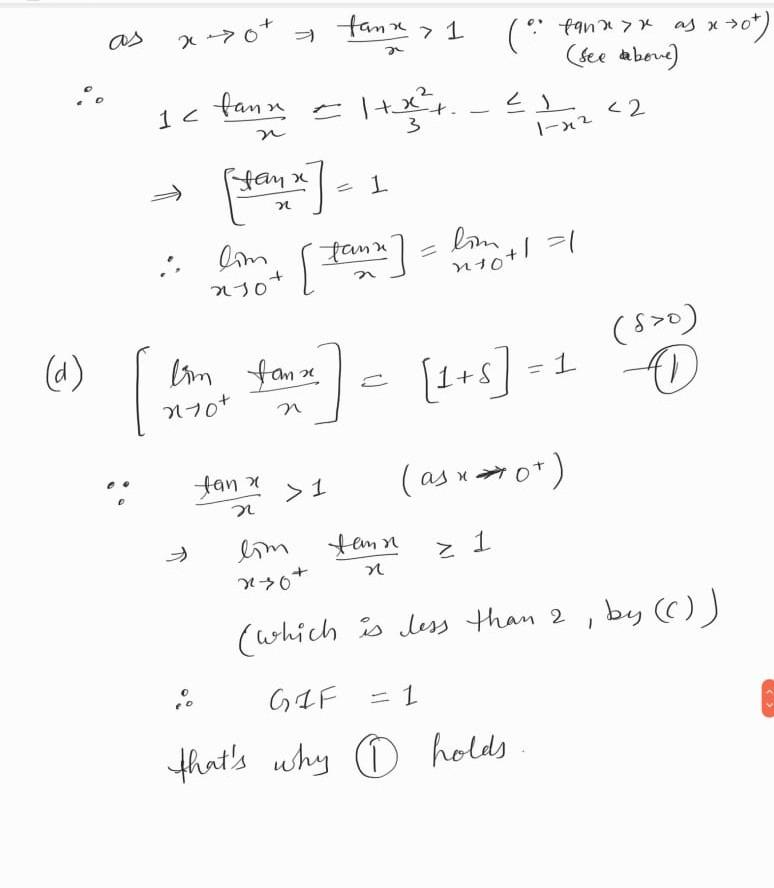 as x → 0⁺ ⇒ tan x / x > 1 (∵ tan x > x as x → 0⁺)
(see above)
∴ 1 < tan x / x = 1 + x²/3 + . _ ≤ 1/(1-x²) < 2
⇒ [tan x / x] = 1
∴ lim x→0⁺ [tan x / x] = lim x→0⁺ 1 = 1
(δ>0)
(d) [lim x→0⁺ tan x / x] = [1+δ] = 1 —①
∵ tan x / x > 1 (as x → 0⁺)
⇒ lim x→0⁺ tan x / x ≥ 1
(which is less than 2, by (c))
∴ GIF = 1
that's why ① holds.